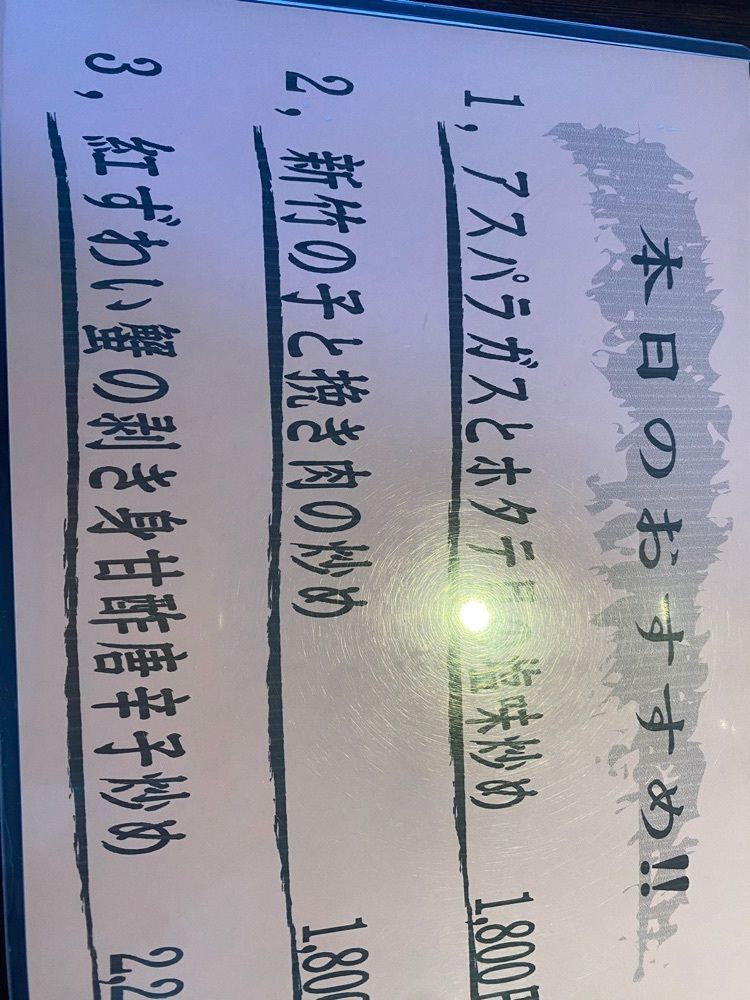 本日のおすすめ!!
1, アスパラガスとホタテ 塩味炒め 1,800円
2, 新竹の子と挽き肉の炒め 1,800
3, 紅ずわい蟹の剥き身甘酢唐辛子炒め 2,2